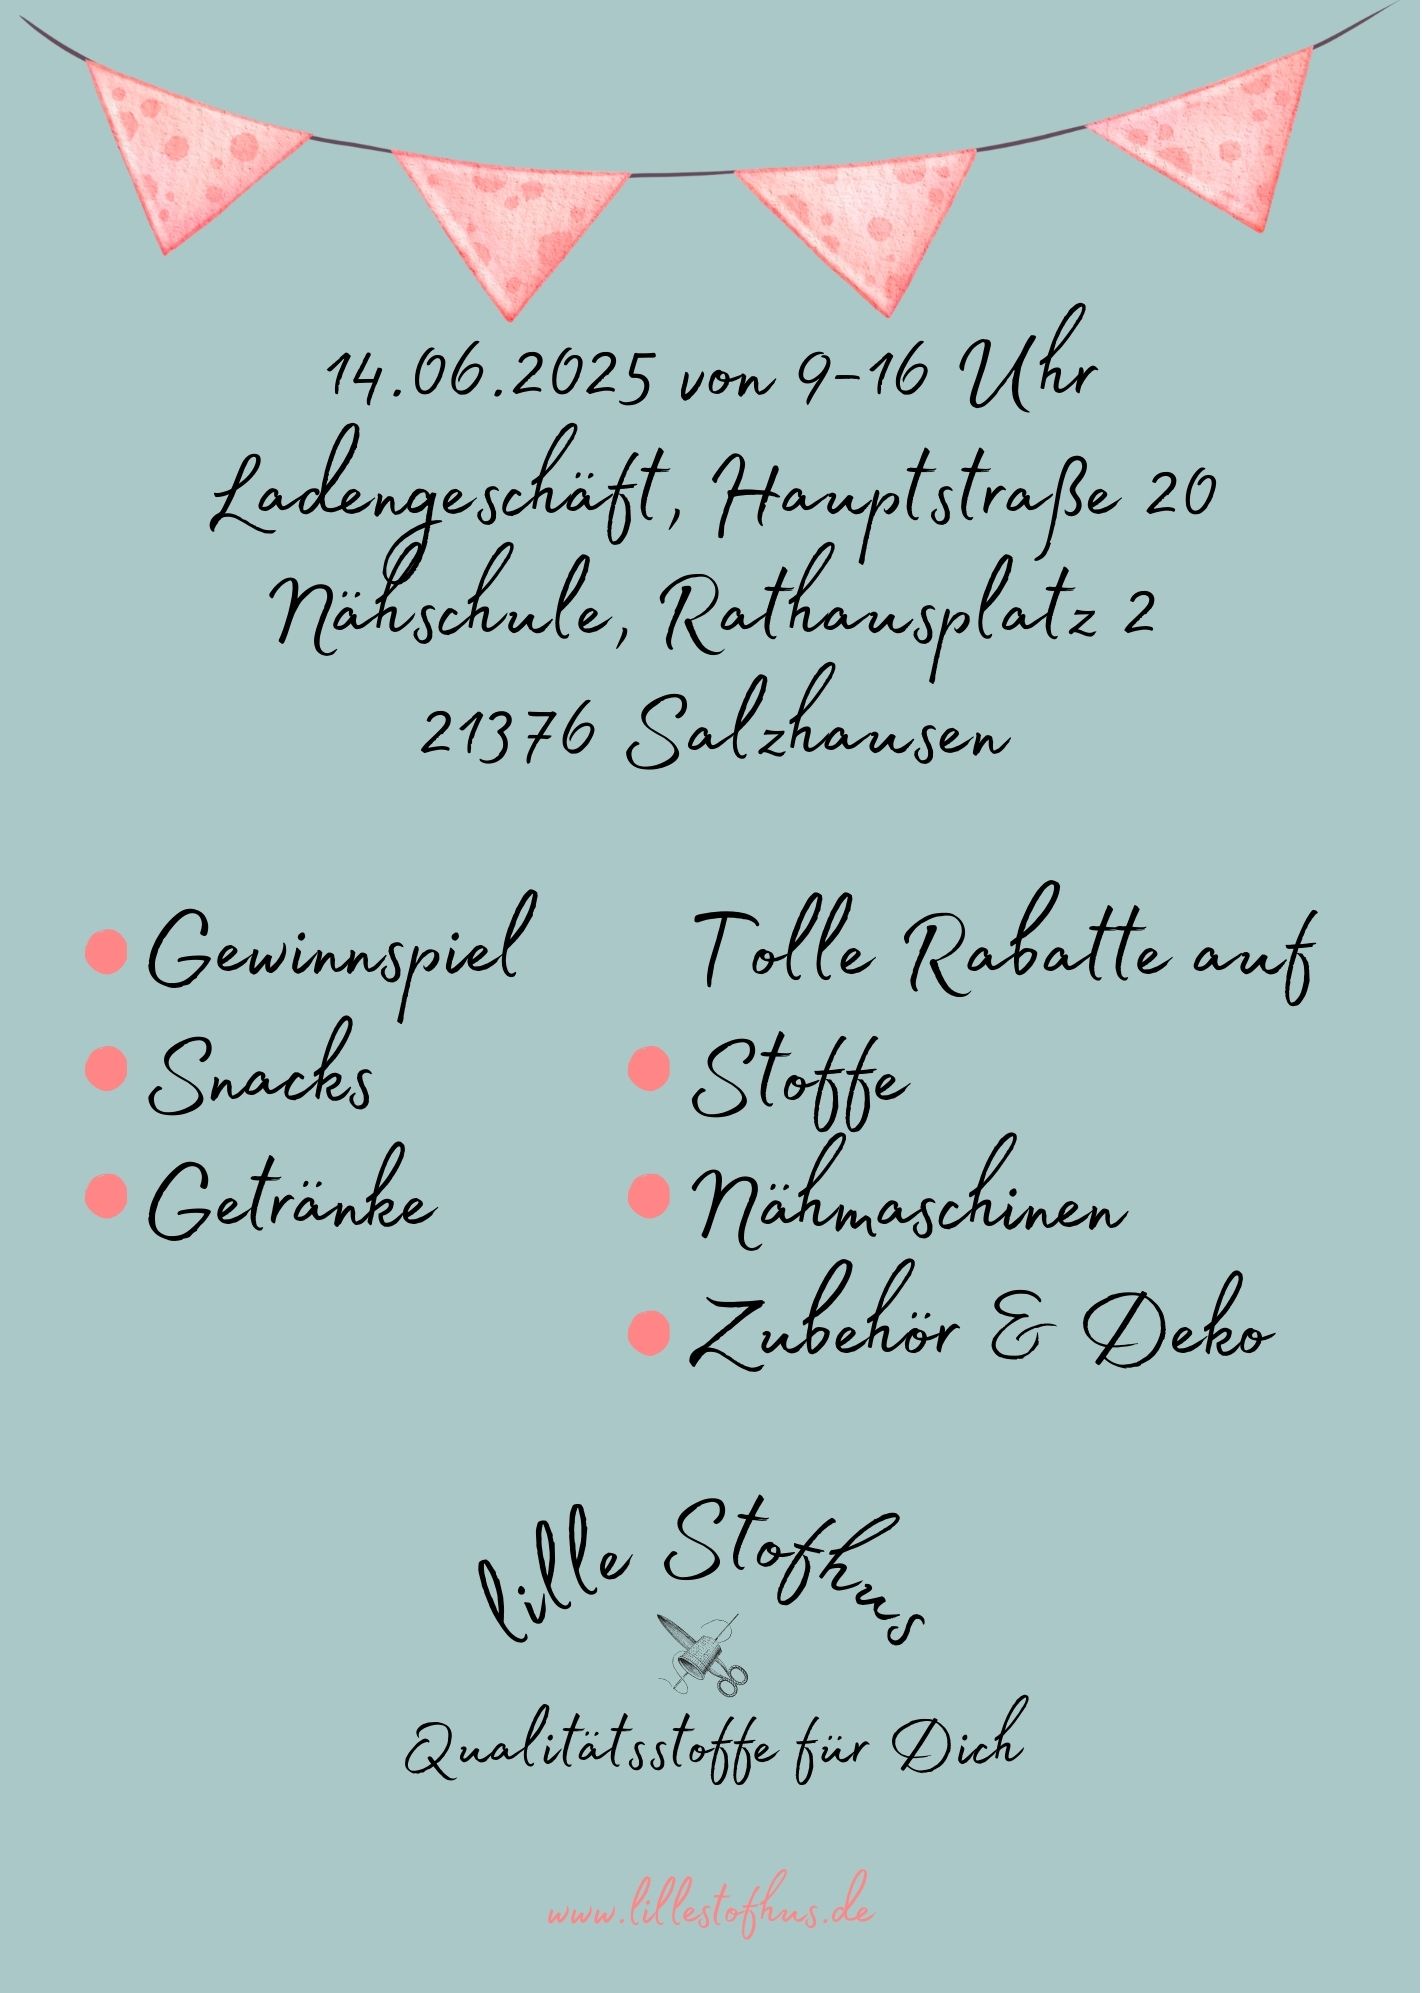 14.06.2025 von 9-16 Uhr
Ladengeschäft, Hauptstraße 20
Nähschule, Rathausplatz 2
21376 Salzhausen
Gewinnspiel
Snacks
Getränke
Tolle Rabatte auf
Stoffe
Nähmaschinen
Zubehör & Deko
lille Stofhus
Qualitätsstoffe für Dich
www.lillestofhus.de